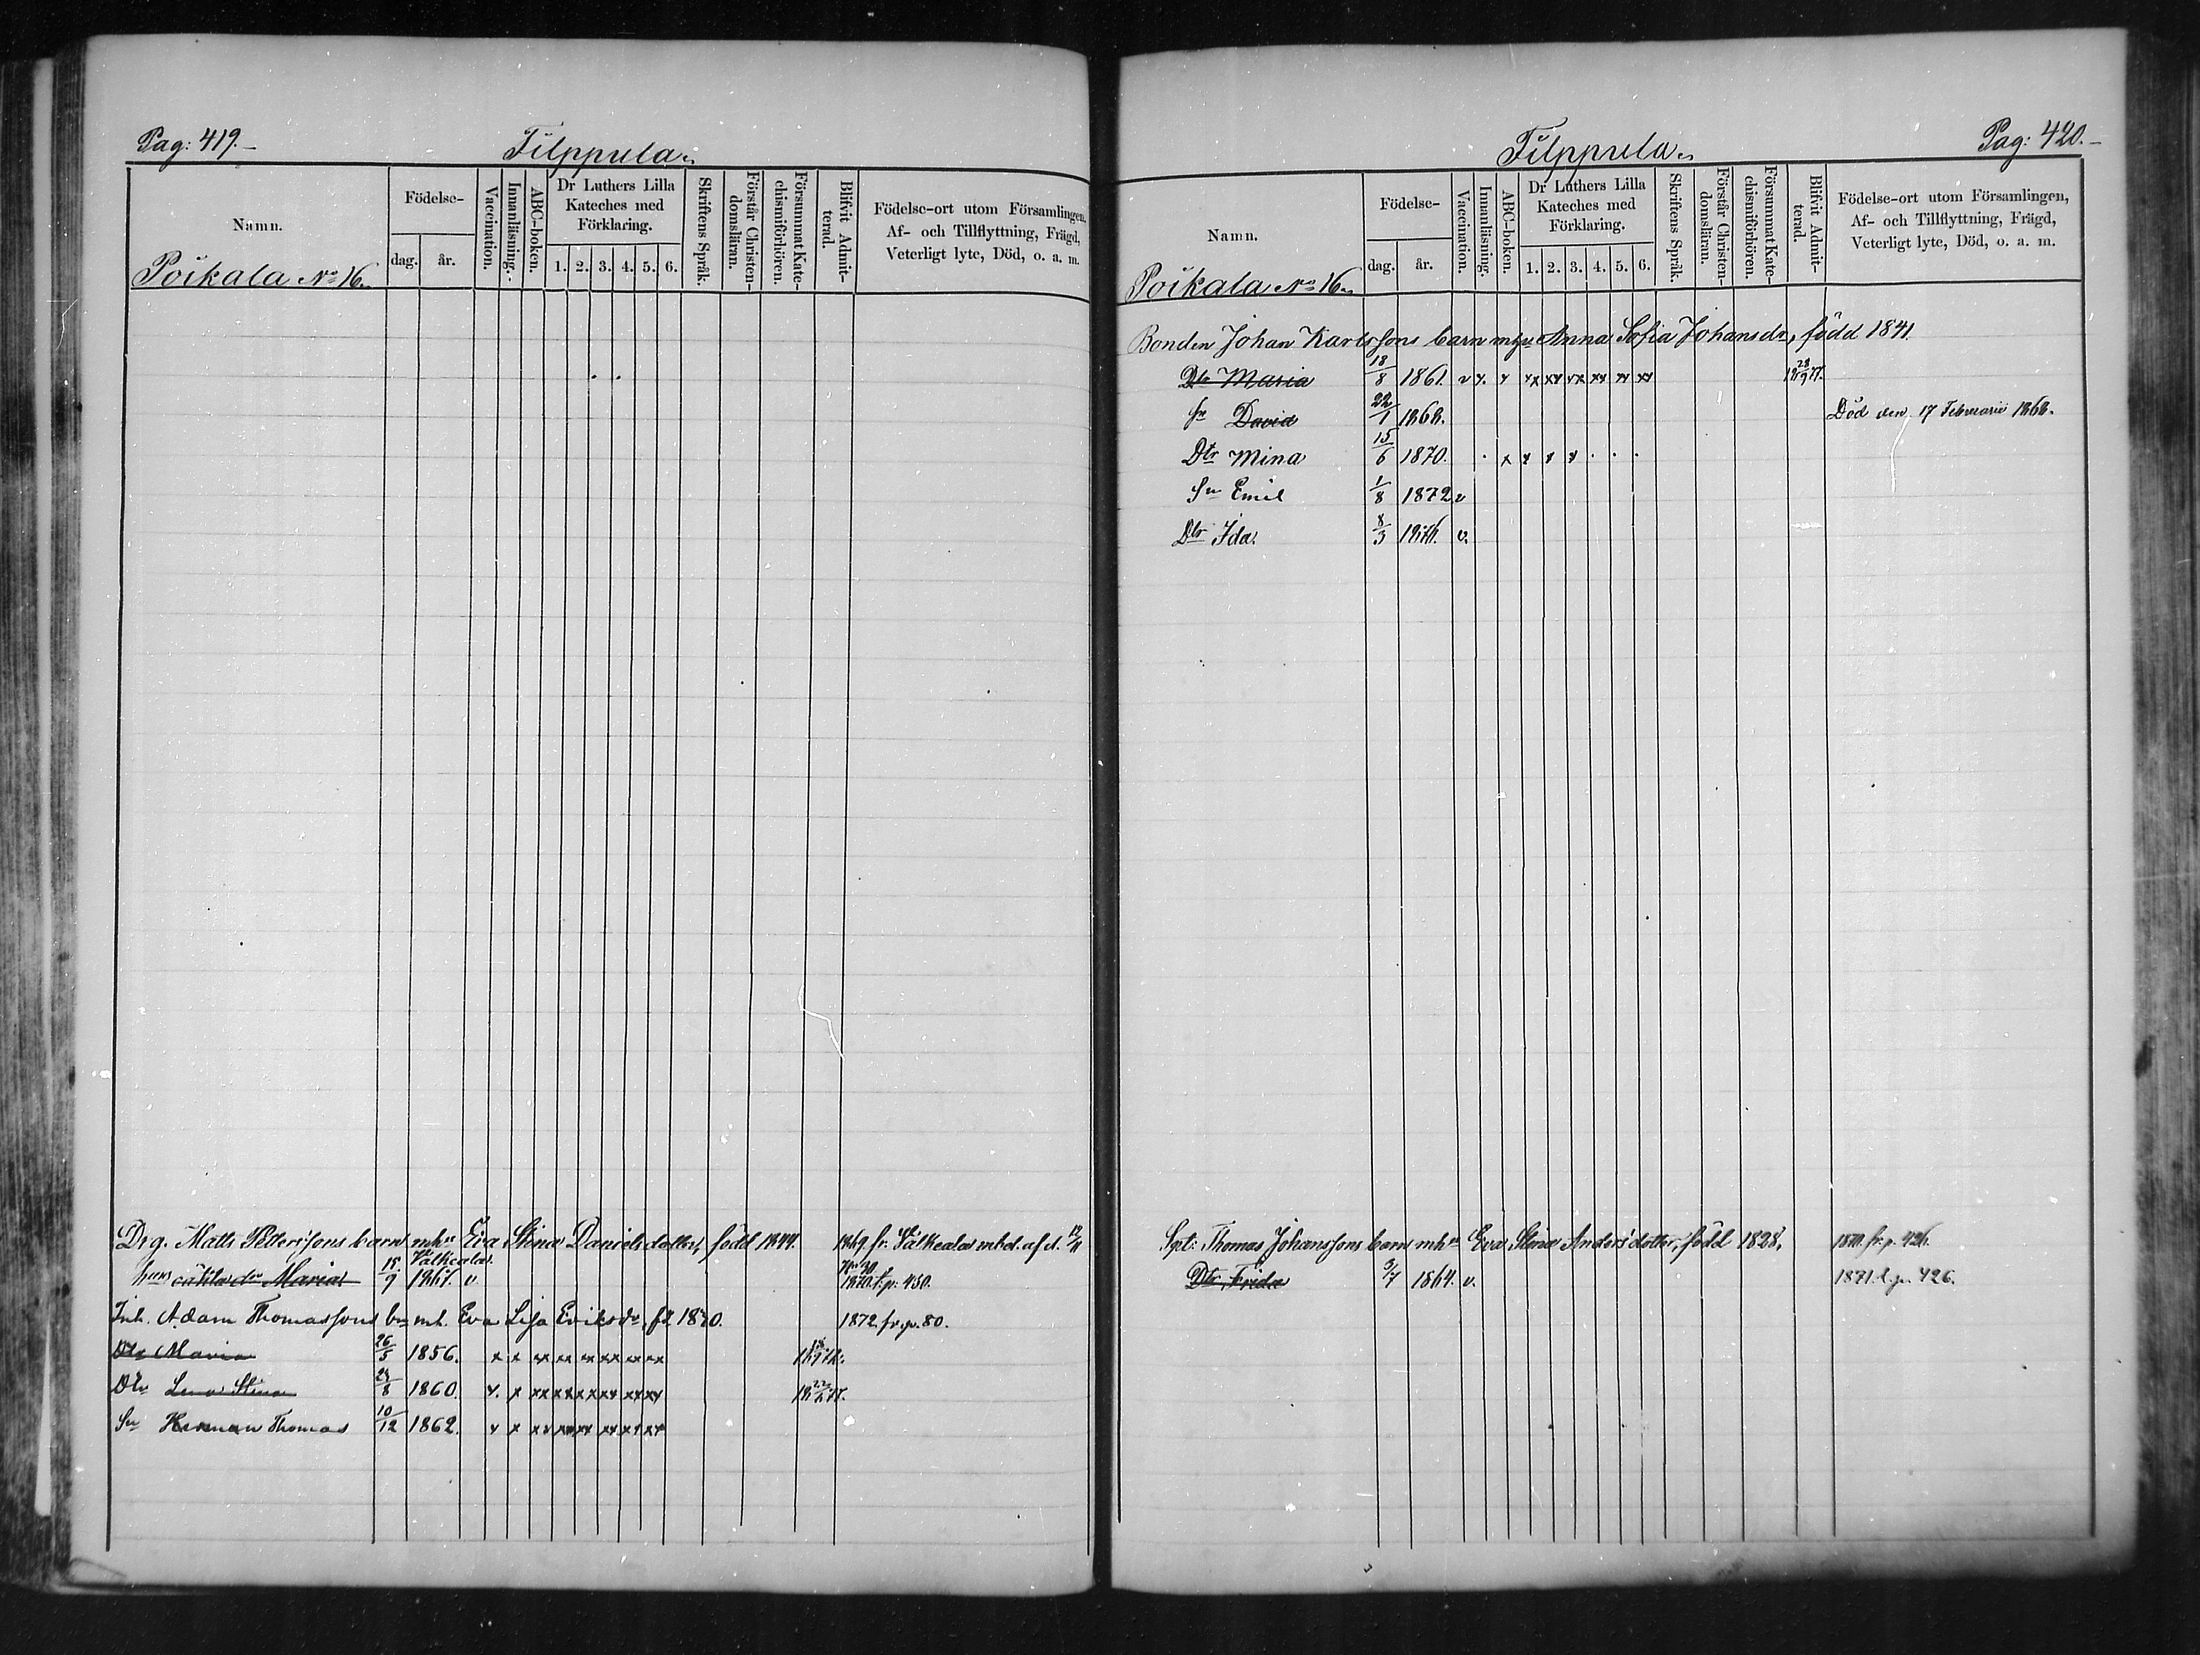 Pag: 419.
Filppula.
Namn.
Födelse-
dag. år.
Vaccination.
Innanläsning.
ABC-boken.
Dr Luthers Lilla Kateches med Förklaring.
1. 2. 3. 4. 5. 6.
Skriftens Språk.
Förstår Christendomsläran.
Försummat Katechismiförhören.
Blifvit Admitterad.
Födelse-ort utom Församlingen,
Af- och Tillflyttning, Frägd,
Veterligt lyte, Död, o. a. m.
Poikala No 16.
Drg. Matts Pederssons barn mhu Eva Stina Danielsdotter, född 1844. 1869 fr. Valkeala mbet. af d.
Valkeala
Maria 18/9 1867. v 1870. p. 450.
Inh. Adam Thomassons bn mh. Eva Lisa Eriksdr, fd 1820. 1872 fr. p. 80.
Dtr Maria 26/5 1856. x x xx xx xx xx xx xx
Dtr Lena Stina 24/8 1860. x x xx xx xx xx xx xx
Sn Herman Thomas 10/12 1862. x x xx xx xx xx xx xx
Pag: 420.
Filppula.
Namn.
Födelse-
dag. år.
Vaccination.
Innanläsning.
ABC-boken.
Dr Luthers Lilla Kateches med Förklaring.
1. 2. 3. 4. 5. 6.
Skriftens Språk.
Förstår Christendomsläran.
Försummat Katechismiförhören.
Blifvit Admitterad.
Födelse-ort utom Församlingen,
Af- och Tillflyttning, Frägd,
Veterligt lyte, Död, o. a. m.
Poikala No 16.
Bonden Johan Karlssons barn mhu Anna Sofia Johansdr, född 1841.
Dtr Maria 18/8 1861. v x. x xx xx xx xx xx xx
Sn David 22/1 1868. Död den 17 Februarii 1868.
Dtr Mina 15/6 1870. x x x x
Sn Emil 1/8 1872 v
Dtr Ida. 8/3 1876. v.
Spl: Thomas Johanssons barn mhu Eva Stina Andersdotter, född 1828. 1870. fr. p. 426.
Dtr Frida 3/7 1864. v. 1871. t. p. 426.